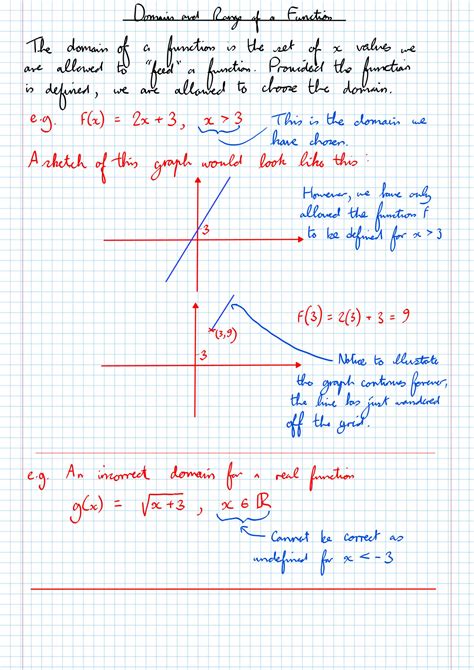 Domain and Range of a Function
The domain of a function is the set of x values we
are allowed to "feed" a function. Provided the function
is defined, we are allowed to choose the domain.
e.g. f(x) = 2x + 3, x > 3
This is the domain we
have chosen.
A sketch of this graph would look like this:
3
However, we have only
allowed the function f
to be defined for x > 3
(3,9)
3
f(3) = 2(3) + 3 = 9
Notice to illustrate
the graph continues forever,
the line has just wandered
off the grid.
e.g. An incorrect domain for a real function
g(x) = √x+3, x ∈ ℝ
Cannot be correct as
undefined for x < -3